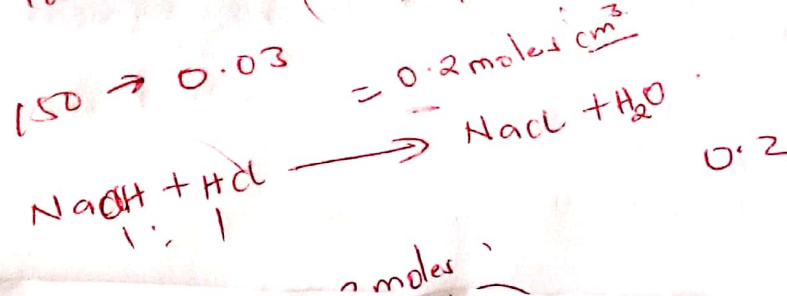 150 → 0.03
= 0.2 moles cm³
NaOH + HCl ⟶ NaCl + H₂O
1 : 1
0.2
moles